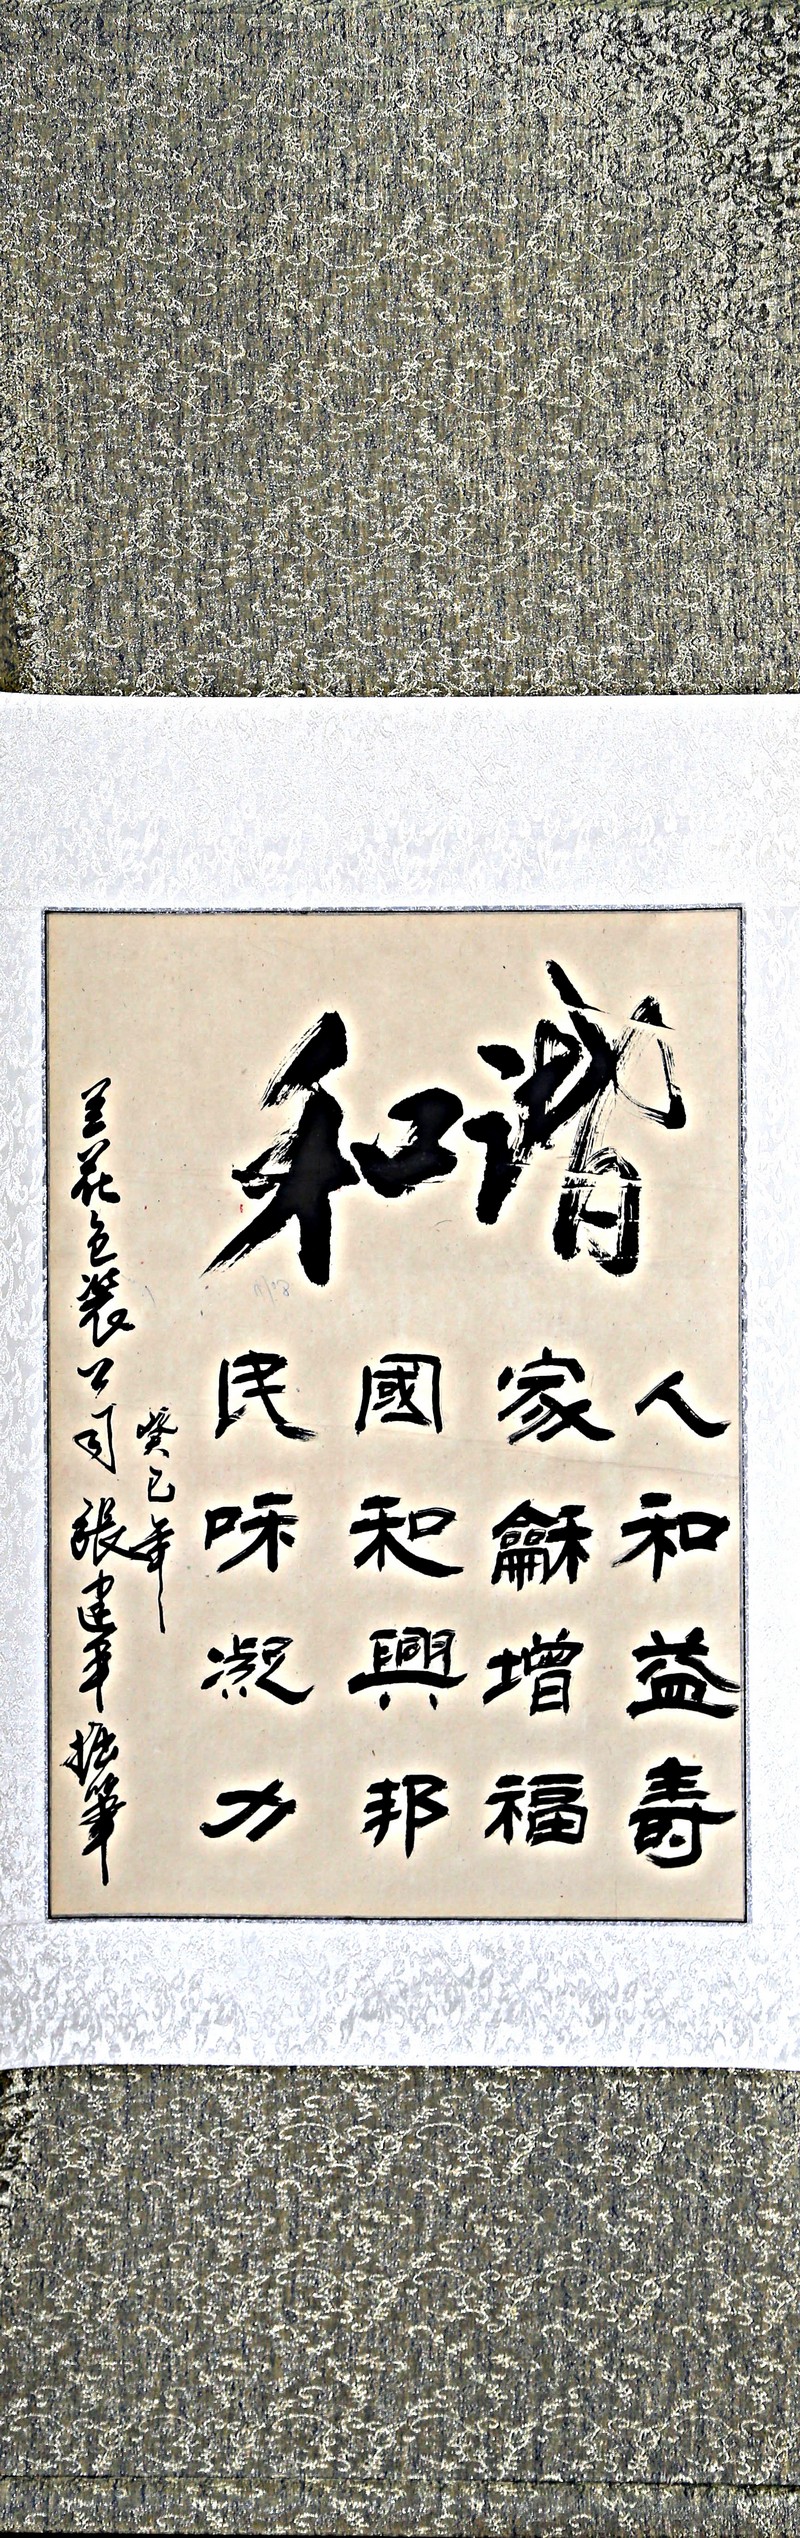 諧和
人和益壽
家龢增福
國和興邦
民咊凝力
癸巳年
兰花包装公司張建平拙筆